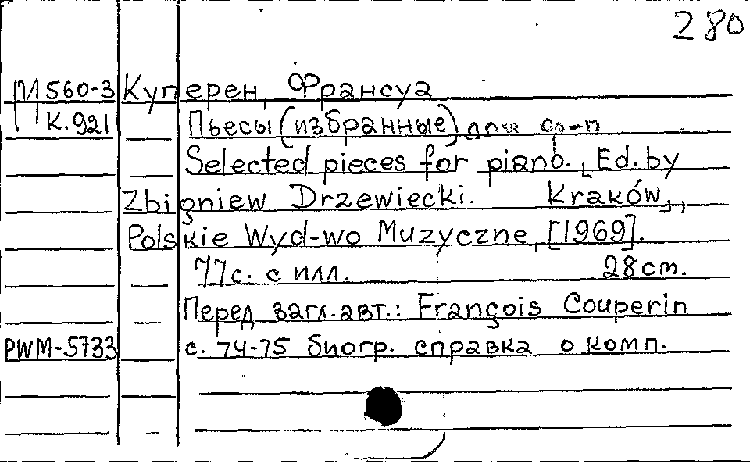 280
М 560-3 Куперен, Франсуа
К.921 Пьесы (избранные) для фо-п
Selected pieces for piano. Ed. by
Zbigniew Drzewiecki. Kraków,
Polskie Wyd-wo Muzyczne, [1969].
77с. с илл. 28cm.
Перед загл. авт.: François Couperin
PWM-5733 с. 74-75 биогр. справка о комп.